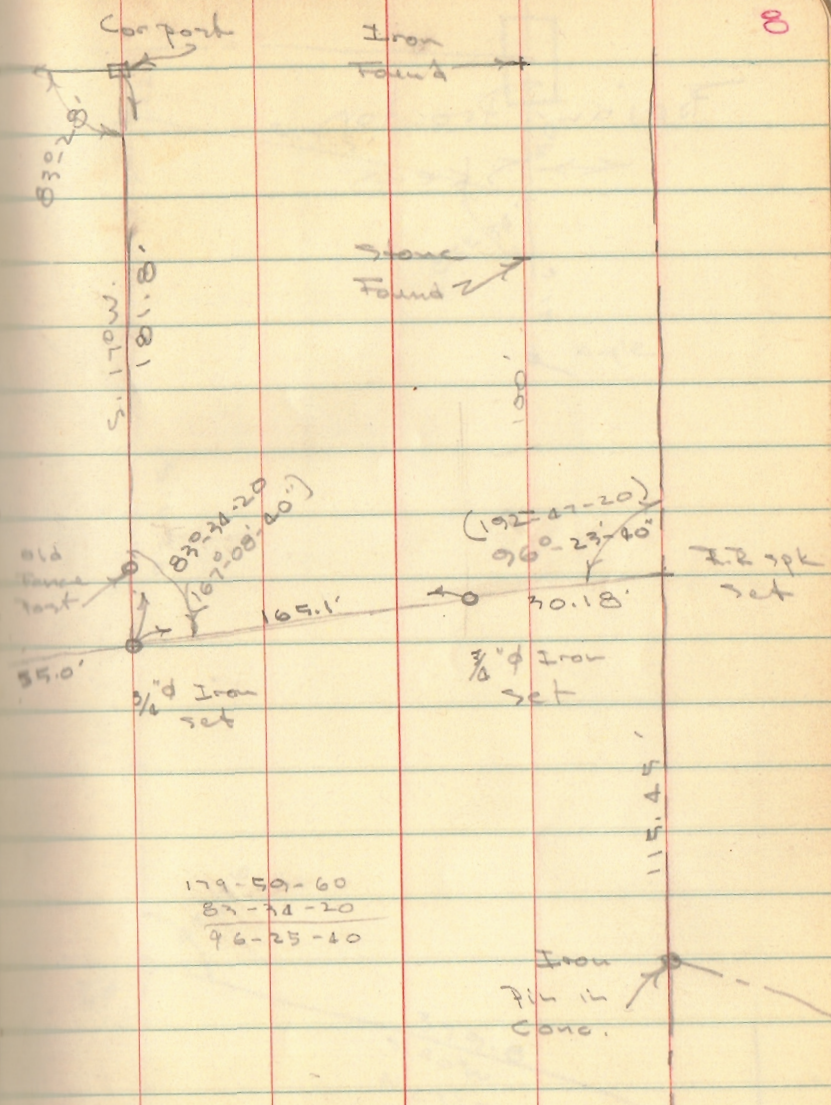 8
Cor post
Iron
Found
83°-28'
Stone
Found
S. 17° W.
181.8'
100'
83°-34'-20
(167°-08'-40")
(192-47-20)
96°-23'-40"
Old
Fence
Post
R.R. spk
set
165.1'
30.18'
35.0'
3/4"φ Iron
set
3/4"φ Iron
set
115.45'
179-59-60
83-34-20
96-25-40
Iron
Pin in
Conc.